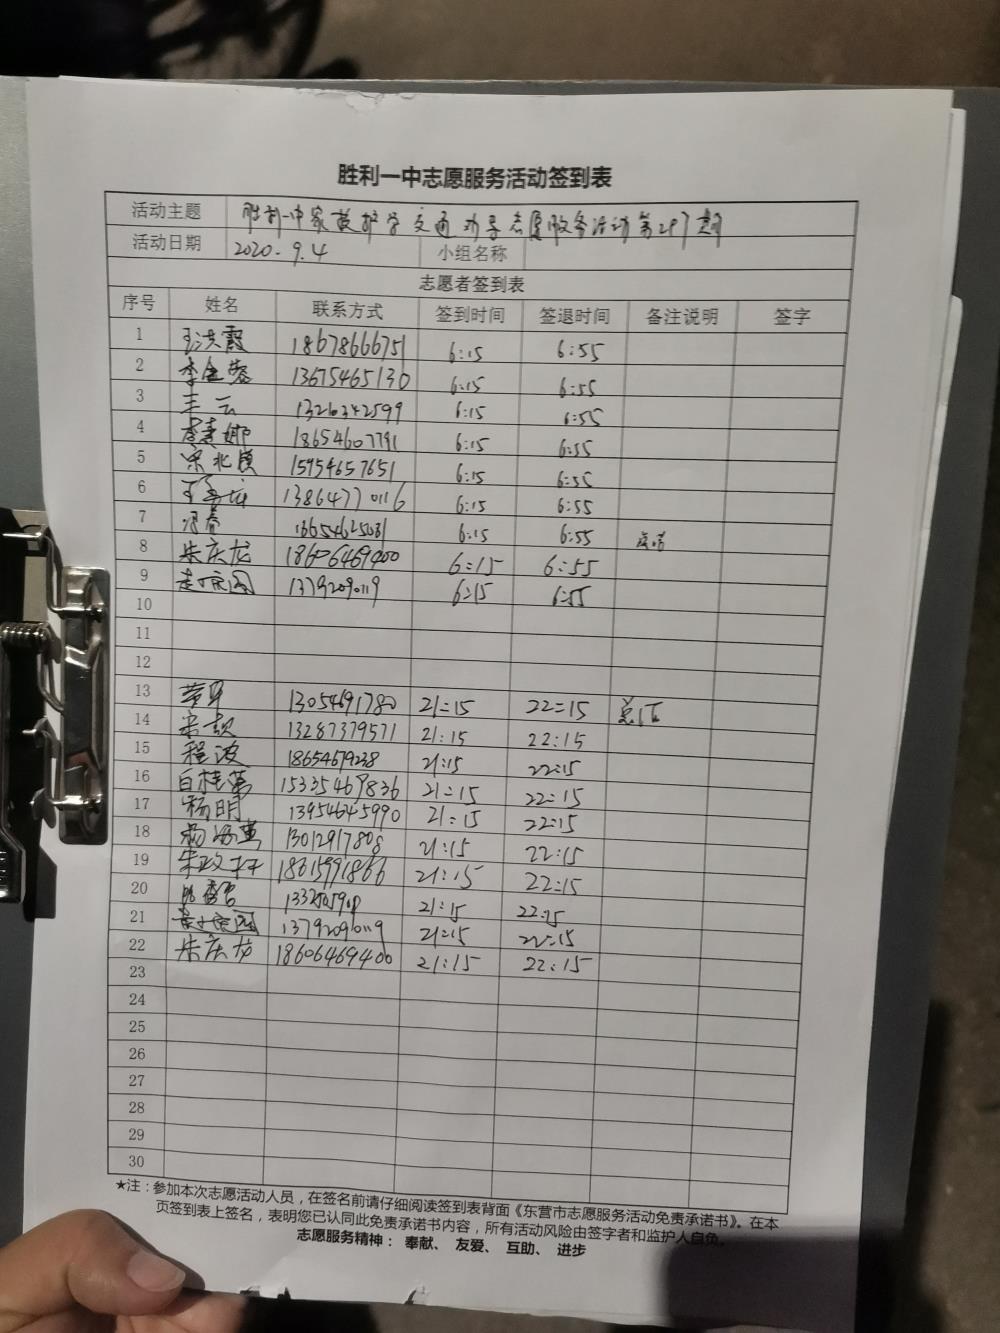 胜利一中志愿服务活动签到表
活动主题 胜利一中家校护学交通劝导志愿服务活动第 期
活动日期 2020.9.4 小组名称
志愿者签到表
序号 姓名 联系方式 签到时间 签退时间 备注说明 签字
1 王洪霞 18678666751 6:15 6:55
2 李金蓉 13675465130 6:15 6:55
3 王云 13216342599 6:15 6:55
4 娜 18654607791 6:15 6:55
5 宋北 15954657651 6:15 6:55
6 13864770116 6:15 6:55
7 13654625031 6:15 6:55
8 朱庆龙 18606469400 6:15 6:55
9 13792090119 6:15 6:55
10
11
12
13 13054691780 21:15 22:15
14 宋 13287379571 21:15 22:15
15 程波 18654679238 21:15 22:15
16 白桂 15335469836 21:15 22:15
17 杨明 13954645990 21:15 22:15
18 13012917808 21:15 22:15
19 18615991866 21:15 22:15
20 21:15 22:15
21 13792090119 21:15 22:15
22 朱庆龙 18606469400 21:15 22:15
23
24
25
26
27
28
29
30
★注：参加本次志愿活动人员，在签名前请仔细阅读签到表背面《东营市志愿服务活动免责承诺书》。在本
页签到表上签名，表明您已认同此免责承诺书内容，所有活动风险由签字者和监护人自负。
志愿服务精神：奉献、友爱、互助、进步